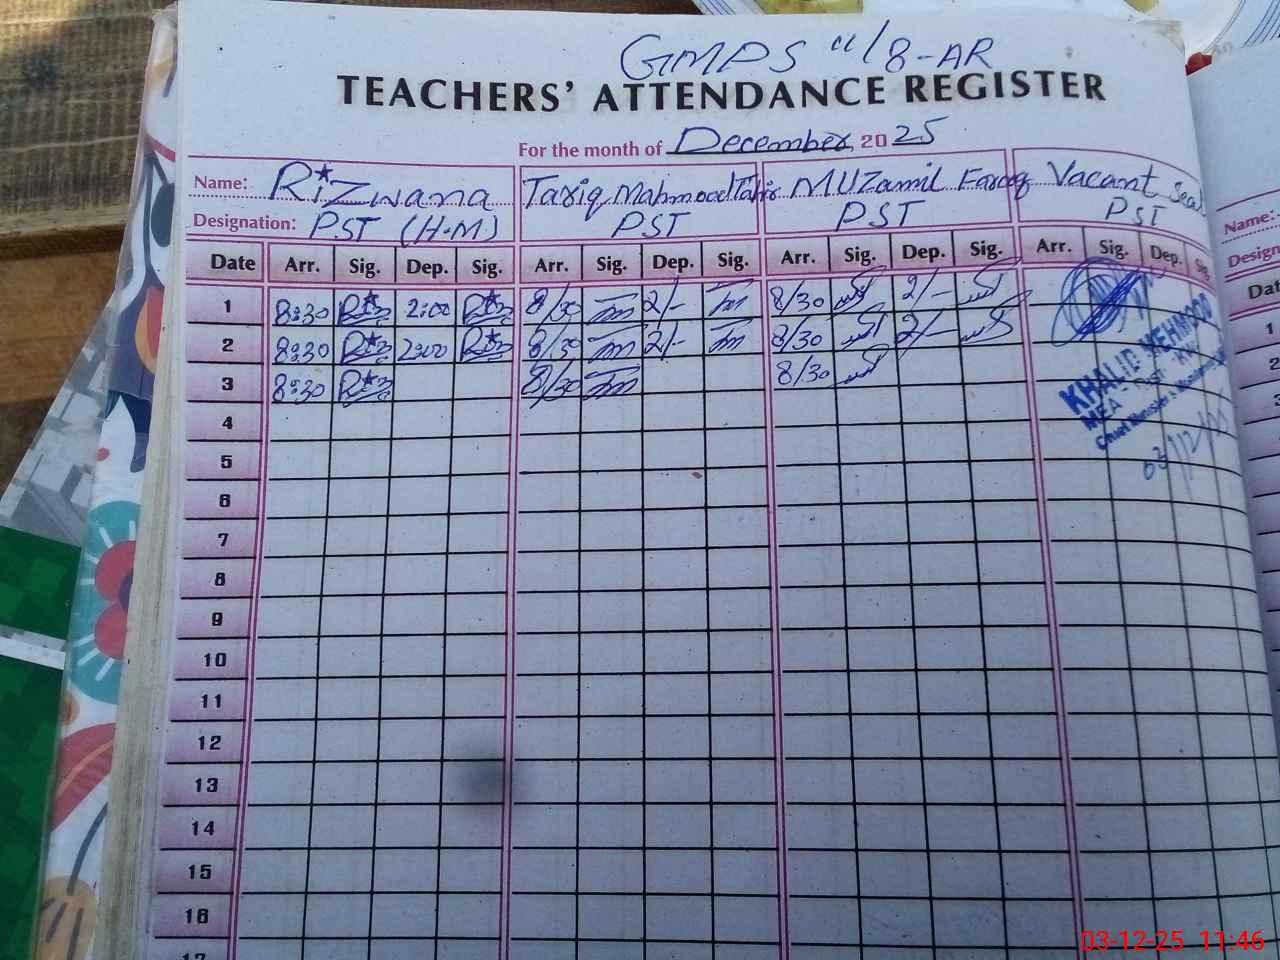 GMPS "/8-AR
TEACHERS' ATTENDANCE REGISTER
For the month of December 2025
Name: Rizwana Tariq Mahmood Tahir Muzamil Farooq Vacant Seat
Designation: PST (H.M) PST PST PST
Date Arr. Sig. Dep. Sig. Arr. Sig. Dep. Sig. Arr. Sig. Dep. Sig. Arr. Sig. Dep. Sig.
1 8:30 Riz 2:00 Riz 8/30 Tm 2/- Tm 8/30 2/-
2 8:30 Riz 2:00 Riz 8/30 Tm 2/- Tm 8/30 2/-
3 8:30 Riz 8/30 Tm 8/30
KHALID MEHMOOD
MEA
03/12/25
4
5
6
7
8
9
10
11
12
13
14
15
16
17
Name:
Design
Dat
1
2
3
03-12-25 11:46